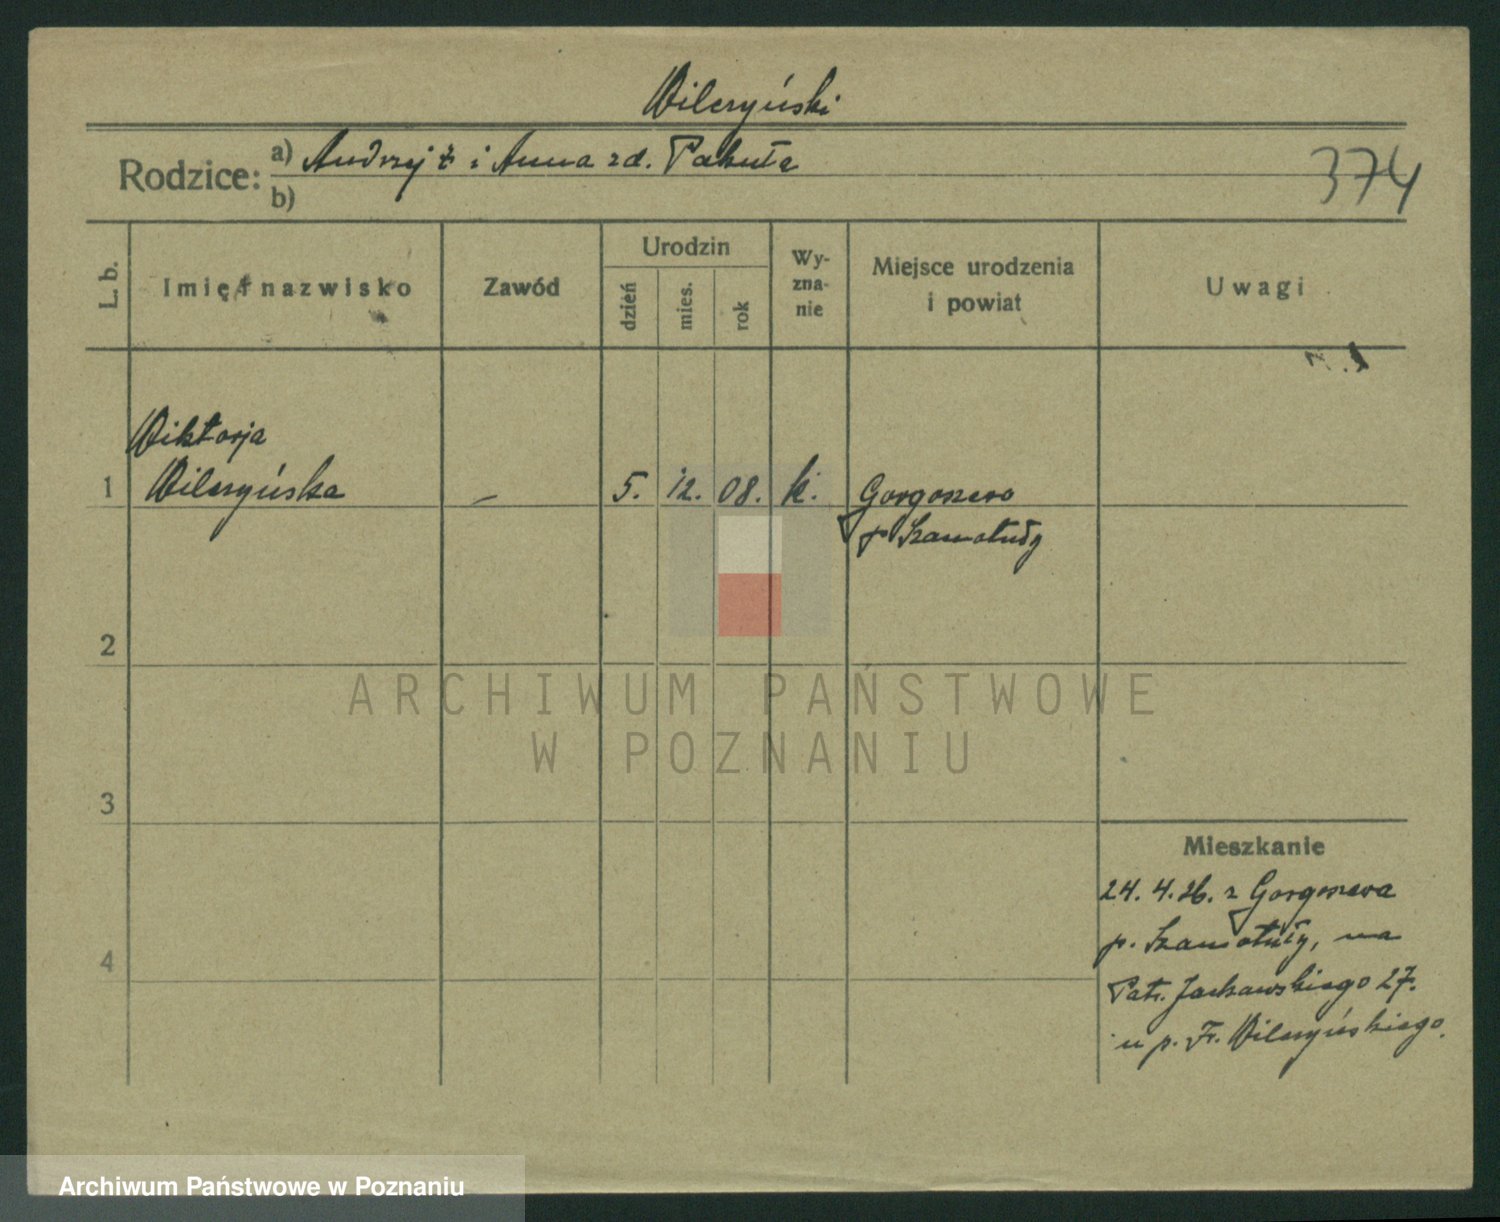 Wilczyński
Rodzice: a) Andrzej ż i Anna zd. Pakuła
b)
374
L. b.
Imię i nazwisko
Zawód
Urodzin
dzień
mies.
rok
Wy-
zna-
nie
Miejsce urodzenia
i powiat
Uwagi
Wiktorja
1 Wilczyńska – 5. 12. 08. k. Gorgoszewo
p Szamotuły
2
ARCHIWUM PAŃSTWOWE
W POZNANIU
3
Mieszkanie
24. 4. 26. z Gorgoszewa
p. Szamotuły, na
4
Patr. Jackowskiego 27.
u p. Fr. Wilczyńskiego.
Archiwum Państwowe w Poznaniu